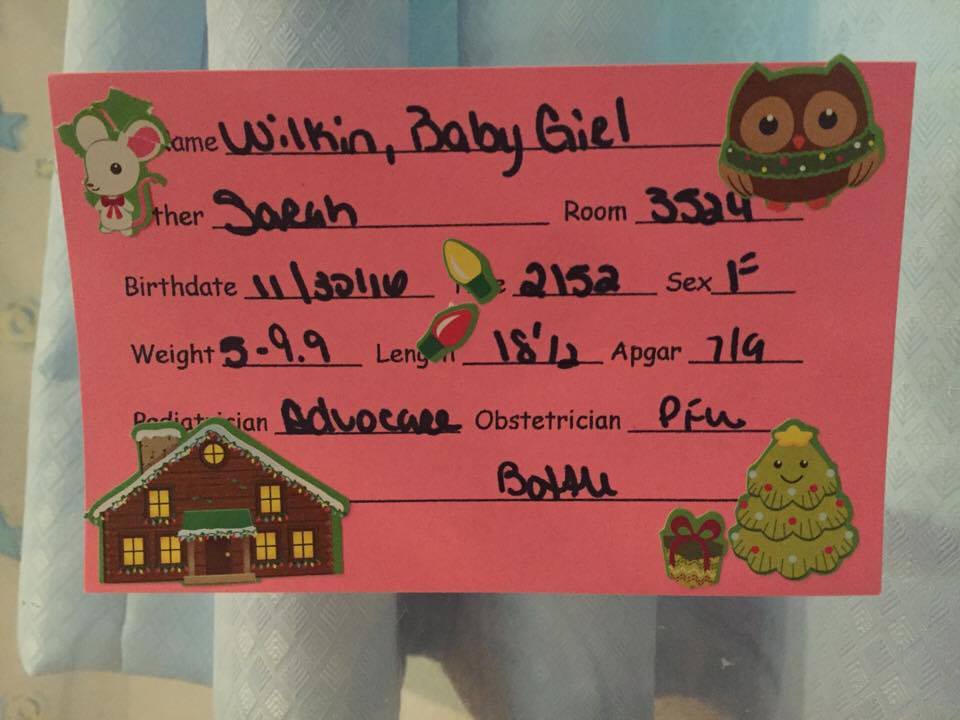 ame Wilkin, Baby Girl
ther Sarah Room 3524
Birthdate 11/30/16 e 2152 Sex F
Weight 5-9.9 Length 18 1/2 Apgar 7/9
Pediatrician Advocare Obstetrician PFW
Bottle